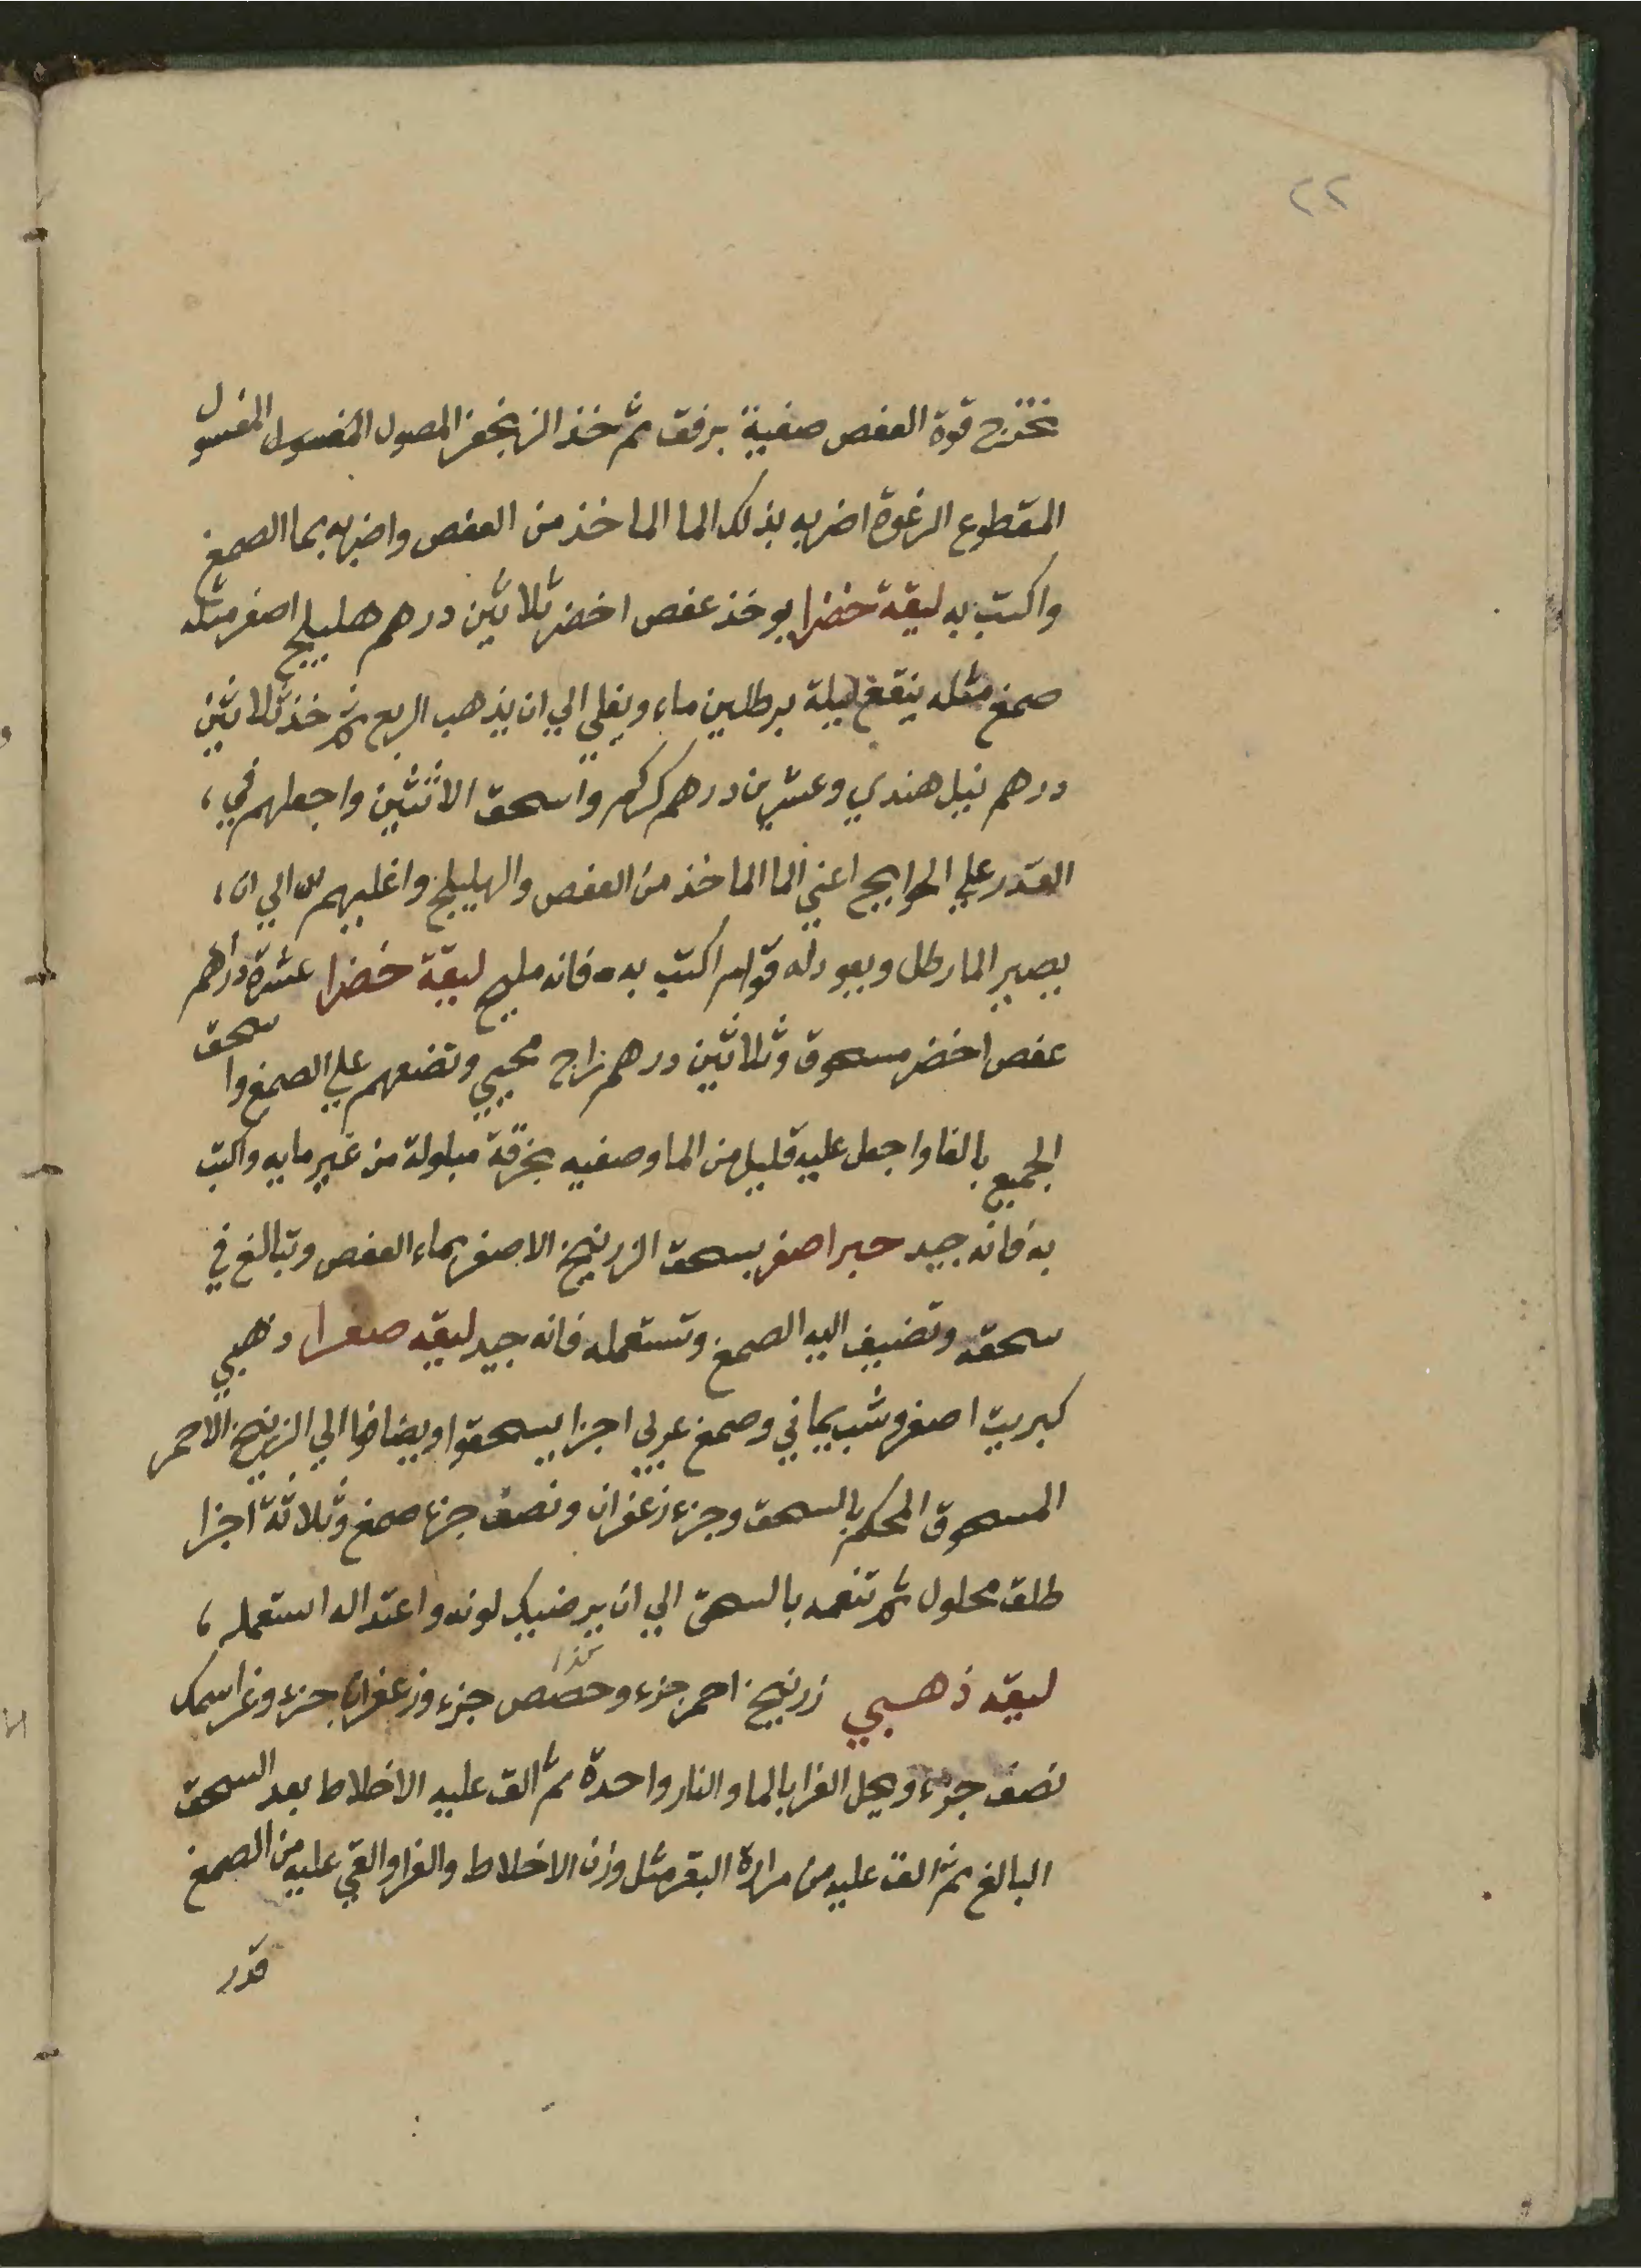 ٢٢
تخرج قوة العفص صفية برفق ثم خذ الزنجفر المصول المغسول المغسول
المقطوع الرغوة اضربه بذلك الما الماخذ من العفص واضربه بما الصمغ
واكتب به ليقة خضرا يوخذ عفص اخضر ثلاثين درهم هليلج اصفر مثله
صمغ مثله ينقع ليلة برطلين ماء ويغلي الي ان يذهب الربع ثم خذ ثلاثين
درهم نيل هندي وعشرين درهم كركم واسحق الاثنين واجعلهم في،
القدر علي الحوايج اعني الما الماخذ من العفص والهليلج واغليهم الي ان،
يصير الما رطل ويعود له قوام اكتب به فانه مليح ليقة خضرا عشرة دراهم
عفص اخضر مسحوق وثلاثين درهم زاج محيي وتضعهم علي الصمغ واسحق
الجميع بالغا واجعل عليه قليل من الما وصفيه بخرقة مبلولة من غير مايه واكتب
به فانه جيد حبر اصفر يسحق الزرنيخ الاصفر بماء العفص وتبالغ في
سحقه وتضيف اليه الصمغ وتستعمله فانه جيد ليقه صفرا دهبي
كبريت اصفر وشب يماني وصمغ عربي اجزا يسحقوا ويضافوا الي الزرنيخ الاحمر
المسحوق المحكم بالسحق وجزء زعفران ونصف جزء صمغ وثلاثة اجزا
طلق محلول ثم تنعمه بالسحق الي ان يرضيك لونه واعتداله استعمله،
ليقه ذهبي زرنيخ احمر جزء وحصص جزء وزعفران جزء وغرا سمك
نصف جزء ويحل الغرا بالما والنار واحدة ثم الق عليه الاخلاط بعد السحق
البالغ ثم الق عليه من مرارة البقر مثل وزن الاخلاط والغرا والقي عليه من الصمغ
قدر